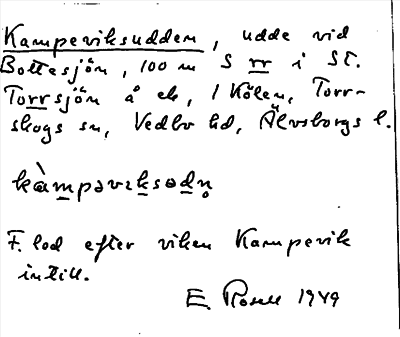 Kamperviksudden, udde vid
Bottesjön, 100 m S rr i St.
Torrsjön å ek, 1 Kölen, Torr-
skogs sn, Vedbo hd, Älvsborgs l.
kàmpərviksədn̥
F. lod efter viken Kampevik
intill.
E. Rosell 1949